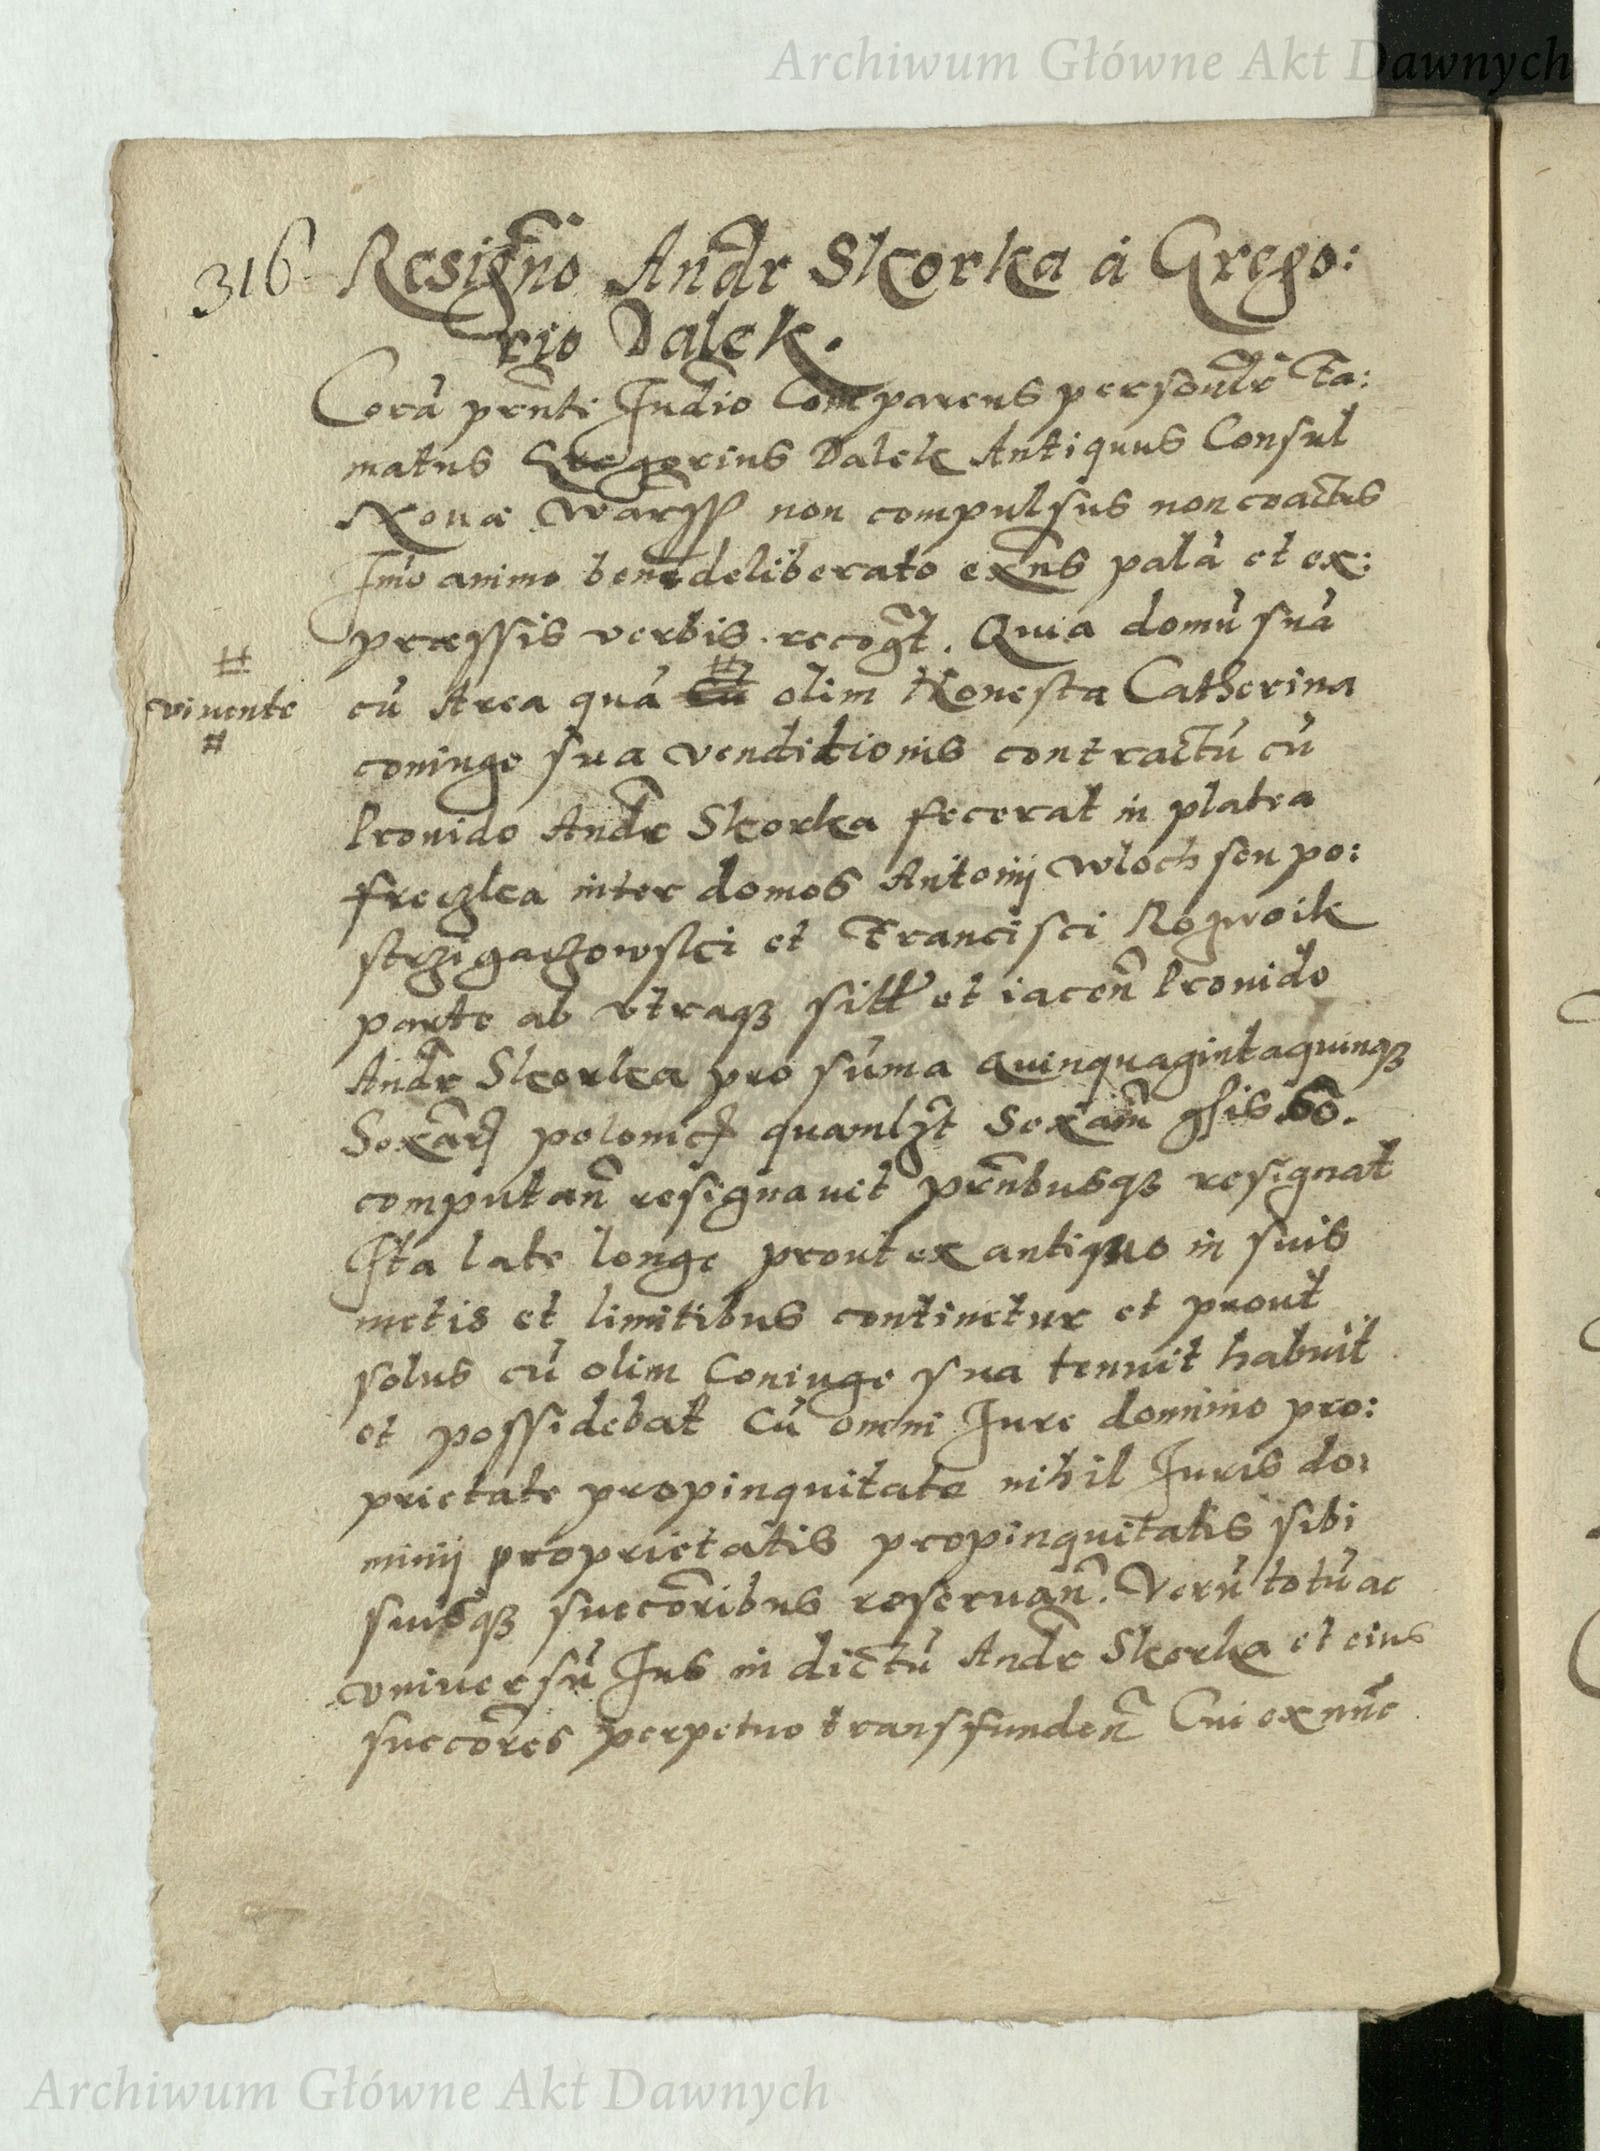 Archiwum Główne Akt Dawnych
316 Resignõ Andr Skorka á Grego:
rio Dalek.
Corá prñti Judio Comparens personlr Fa:
matus Gregorius Dalek Antiquus Consul
Nouæ Warss non compulsus non coactus
Imo animo bene deliberato exñs palá et ex:
præssis verbis recogt. Quia domú suá
#
vivente
#
cú Area quá cú # olim Honesta Catherina
coniuge sua venditionis contractú cú
Prouido Andr Skorka fecerat in platea
freczka inter domos Antonij Wloch seu po:
strzigaczowski et Francisci Rozwoik
parte ab vtraqꝫ sitt et iaceñ Prouido
Andr Skorka pro súma Quinquagintaquinqꝫ
Sexar polonic quamlzt Sexam gsis 60.
computañ resignauit prñbusqꝫ resignat
Ita late longe prout ex antiquo in suis
metis et limitibus continetur et prout
solus cú olim Coniuge sua tenuit habuit
et possidebat Cú omni Jure dominio pro:
prietate propinquitate nihil Juris do:
minij proprietatis propinquitatis sibi
suisqꝫ succoribus reseruañ. Verú totú ac
vniuersú Jus in dictú Andr Skorka et eius
succores perpetuo transfundeñ Cui ex nũc
Archiwum Główne Akt Dawnych